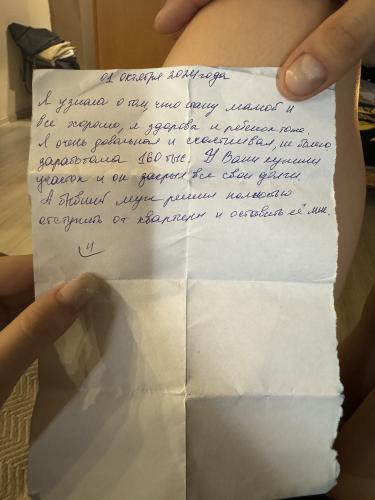 01 октября 2024 года
Я узнала о том, что стану мамой и
все хорошо, я здорова и ребенок тоже.
Я очень довольная и счастливая,
заработала 160 тыс. У Вани купили
участок и он закрыл все свои долги.
А бывший муж решил полностью
отступить от квартиры и оставить её мне.